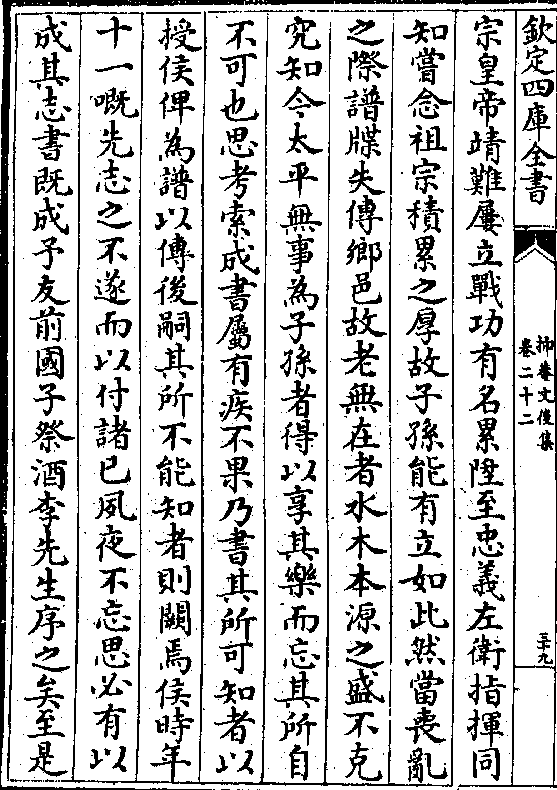 欽定四庫全書
抑菴文後集
卷二十二
三十九
宗皇帝靖難屢立戰功有名累陞至忠義左衛指揮同
知嘗念祖宗積累之厚故子孫能有立如此然當喪亂
之際譜牒失傳鄉邑故老無在者水木本源之盛不克
究知今太平無事為子孫者得以享其樂而忘其所自
不可也思考索成書屬有疾不果乃書其所可知者以
授侯俾為譜以傳後嗣其所不能知者則闕焉侯時年
十一嘅先志之不遂而以付諸已夙夜不忘思必有以
成其志書既成予友前國子祭酒李先生序之矣至是